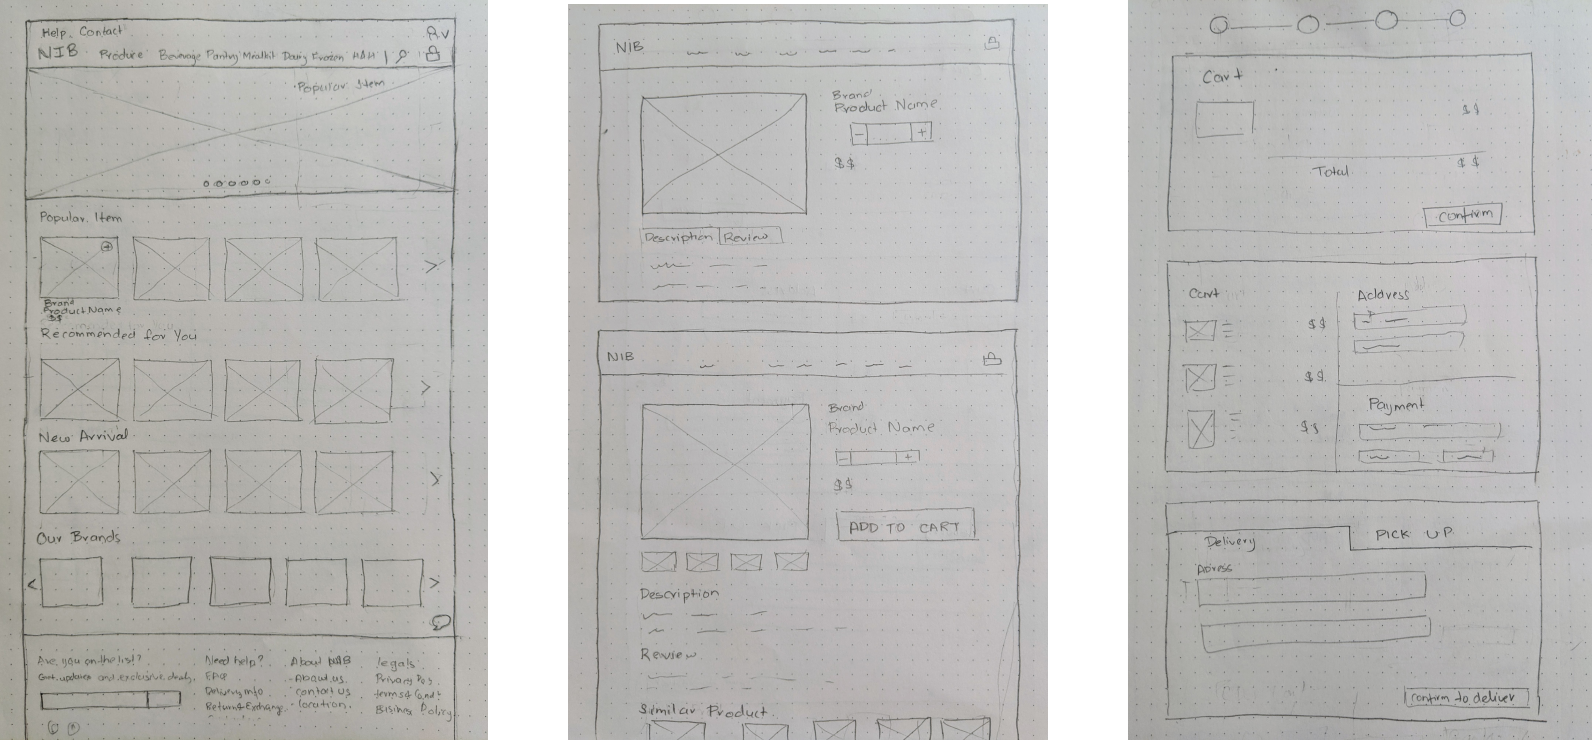 Help. Contact
NIB Produce Beverage Pantry Mealkit Dairy Frozen H&H
Popular Item
Popular Item
Brand
Product Name
$$
Recommended for You
New Arrival
Our Brands
Are you on the list?
Get updates and exclusive deals.
Need help?
FAQ
Delivery info
Return & Exchange
About NIB
About us
contact us
location.
legals
Privacy
terms & Cond
Policy
NIB
Brand
Product Name
- +
$$
Description Review
NIB
Brand
Product Name
- +
$$
ADD TO CART
Description
Review
Similar Product
Cart
$$
Total $$
Confirm
Cart
$$
$$
$$
Address
Payment
Delivery PICK UP
Adress
Confirm to deliver